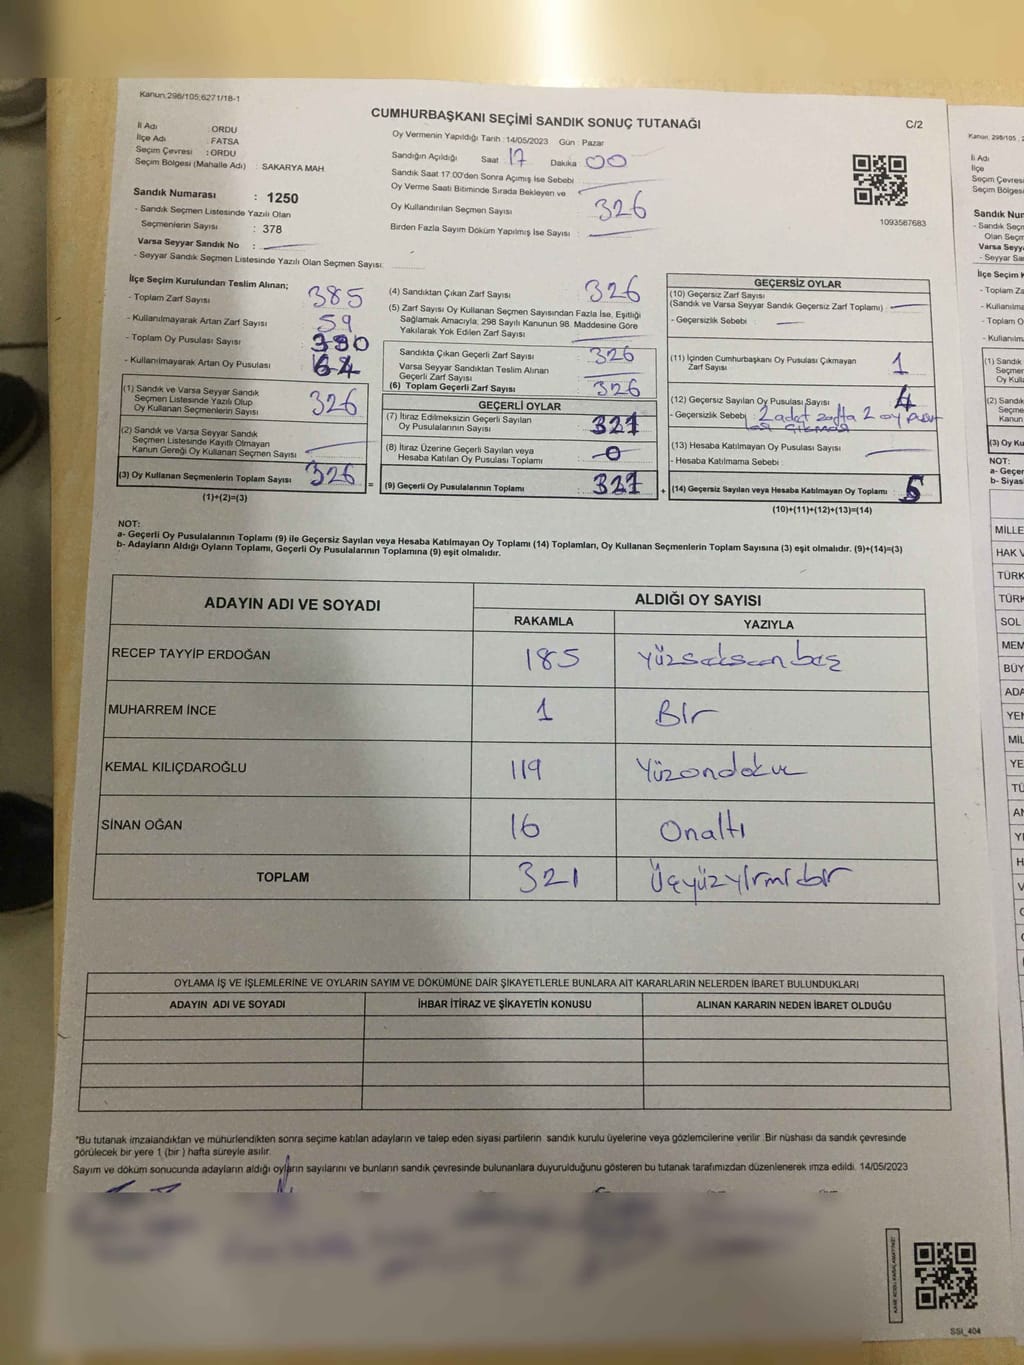 Kanun;298/105;6271/18-1
CUMHURBAŞKANI SEÇİMİ SANDIK SONUÇ TUTANAĞI
C/2
İl Adı : ORDU
İlçe Adı : FATSA
Seçim Çevresi : ORDU
Seçim Bölgesi (Mahalle Adı) : SAKARYA MAH
Sandık Numarası : 1250
- Sandık Seçmen Listesinde Yazılı Olan
Seçmenlerin Sayısı : 378
Varsa Seyyar Sandık No :
- Seyyar Sandık Seçmen Listesinde Yazılı Olan Seçmen Sayısı:
Oy Vermenin Yapıldığı Tarih : 14/05/2023 Gün : Pazar
Sandığın Açıldığı Saat 17 Dakika 00
Sandık Saat 17.00'den Sonra Açımış İse Sebebi
Oy Verme Saati Bitiminde Sırada Bekleyen ve
Oy Kullandırılan Seçmen Sayısı 326
Birden Fazla Sayım Döküm Yapılmış İse Sayısı :
1093587683
İlçe Seçim Kurulundan Teslim Alınan;
- Toplam Zarf Sayısı : 385
- Kullanılmayarak Artan Zarf Sayısı : 59
- Toplam Oy Pusulası Sayısı : 390
- Kullanılmayarak Artan Oy Pusulası : 64
(1) Sandık ve Varsa Seyyar Sandık
Seçmen Listesinde Yazılı Olup
Oy Kullanan Seçmenlerin Sayısı 326
(2) Sandık ve Varsa Seyyar Sandık
Seçmen Listesinde Kayıtlı Olmayan
Kanun Gereği Oy Kullanan Seçmen Sayısı
(3) Oy Kullanan Seçmenlerin Toplam Sayısı 326
(1)+(2)=(3)
=
(4) Sandıktan Çıkan Zarf Sayısı : 326
(5) Zarf Sayısı Oy Kullanan Seçmen Sayısından Fazla İse, Eşitliği
Sağlamak Amacıyla, 298 Sayılı Kanunun 98. Maddesine Göre
Yakılarak Yok Edilen Zarf Sayısı
Sandıkta Çıkan Geçerli Zarf Sayısı : 326
Varsa Seyyar Sandıktan Teslim Alınan
Geçerli Zarf Sayısı
(6) Toplam Geçerli Zarf Sayısı : 326
GEÇERLİ OYLAR
(7) İtiraz Edilmeksizin Geçerli Sayılan
Oy Pusulalarının Sayısı : 321
(8) İtiraz Üzerine Geçerli Sayılan veya
Hesaba Katılan Oy Pusulası Toplamı : 0
(9) Geçerli Oy Pusulalarının Toplamı : 321
+
GEÇERSİZ OYLAR
(10) Geçersiz Zarf Sayısı
(Sandık ve Varsa Seyyar Sandık Geçersiz Zarf Toplamı)
- Geçersizlik Sebebi :
(11) İçinden Cumhurbaşkanı Oy Pusulası Çıkmayan
Zarf Sayısı 1
(12) Geçersiz Sayılan Oy Pusulası Sayısı 4
- Geçersizlik Sebebi : 2 adet zarfta 2 oy
çıkması
(13) Hesaba Katılmayan Oy Pusulası Sayısı
- Hesaba Katılmama Sebebi
(14) Geçersiz Sayılan veya Hesaba Katılmayan Oy Toplamı 5
(10)+(11)+(12)+(13)=(14)
NOT:
a- Geçerli Oy Pusulalarının Toplamı (9) ile Geçersiz Sayılan veya Hesaba Katılmayan Oy Toplamı (14) Toplamları, Oy Kullanan Seçmenlerin Toplam Sayısına (3) eşit olmalıdır. (9)+(14)=(3)
b- Adayların Aldığı Oyların Toplamı, Geçerli Oy Pusulalarının Toplamına (9) eşit olmalıdır.
ADAYIN ADI VE SOYADI ALDIĞI OY SAYISI
RAKAMLA YAZIYLA
RECEP TAYYİP ERDOĞAN 185 Yüzseksenbeş
MUHARREM İNCE 1 Bir
KEMAL KILIÇDAROĞLU 119 Yüzondokuz
SİNAN OĞAN 16 Onaltı
TOPLAM 321 Üçyüzyirmibir
OYLAMA İŞ VE İŞLEMLERİNE VE OYLARIN SAYIM VE DÖKÜMÜNE DAİR ŞİKAYETLERLE BUNLARA AİT KARARLARIN NELERDEN İBARET BULUNDUKLARI
ADAYIN ADI VE SOYADI İHBAR İTİRAZ VE ŞİKAYETİN KONUSU ALINAN KARARIN NEDEN İBARET OLDUĞU
*Bu tutanak imzalandıktan ve mühürlendikten sonra seçime katılan adayların ve talep eden siyasi partilerin sandık kurulu üyelerine veya gözlemcilerine verilir .Bir nüshası da sandık çevresinde
görülecek bir yere 1 (bir ) hafta süreyle asılır.
Sayım ve döküm sonucunda adayların aldığı oyların sayılarını ve bunların sandık çevresinde bulunanlara duyurulduğunu gösteren bu tutanak tarafımızdan düzenlenerek imza edildi. 14/05/2023
SSI_404
Kanun, 298/105
İl Adı
İlçe
Seçim Çevresi
Seçim Bölgesi
NOT:
MİLLE
HAK V
TÜRK
TÜRK
SOL
MEM
BÜY
ADA
YEN
MİL
YE
TÜ